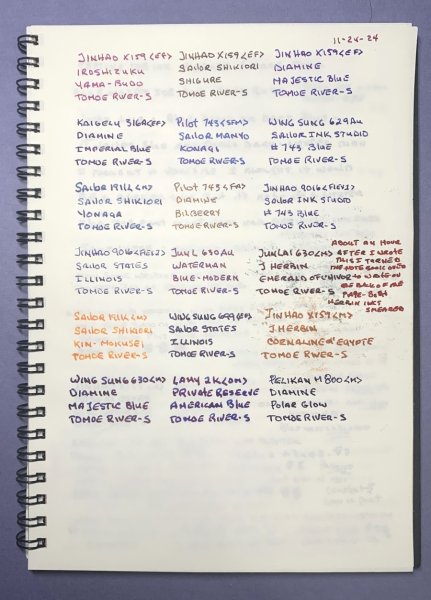 11-24-24
JINHAO X159 <EF>
IROSHIZUKU
YAMA-BUDO
TOMOE RIVER-S
JINHAO X159 <EF>
SAILOR SHIKIORI
SHIGURE
TOMOE RIVER-S
JINHAO X159 <EF>
DIAMINE
MAJESTIC BLUE
TOMOE RIVER-S
KAIGELU 316A <EF>
DIAMINE
IMPERIAL BLUE
TOMOE RIVER-S
PILOT 743 <SFM>
SAILOR MANYO
KONAGI
TOMOE RIVER-S
WING SUNG 629 AU
SAILOR INK STUDIO
#743 BLUE
TOMOE RIVER-S
SAILOR 1911L <M>
SAILOR SHIKIORI
YONAGA
TOMOE RIVER-S
PILOT 743 <FA>
DIAMINE
BILBERRY
TOMOE RIVER-S
JINHAO 9016
SAILOR INK STUDIO
#743 BLUE
TOMOE RIVER-S
JINHAO 9016
SAILOR STATES
ILLINOIS
TOMOE RIVER-S
JUN L 630 AU
WATERMAN
BLUE-MODERN
TOMOE RIVER-S
JUNLAI 630 <M>
J HERBIN
EMERALD OF CHIVOR
TOMOE RIVER-S
ABOUT AN HOUR
AFTER I WROTE
THIS I TURNED
THE NOTE BOOK OVER
TO WRITE ON
THE BACK OF THE
PAGE- BOTH
HERBIN INKS
SMEARED
SAILOR 1911L <M>
SAILOR SHIKIORI
KIN-MOKUSEI
TOMOE RIVER-S
WING SUNG 699 <EF>
SAILOR STATES
ILLINOIS
TOMOE RIVER-S
JINHAO X159 <M>
J. HERBIN
CORNALINE D'EGYPTE
TOMOE RIVER-S
WING SUNG 630 <M>
DIAMINE
MAJESTIC BLUE
TOMOE RIVER-S
LAMY 2K <OM>
PRIVATE RESERVE
AMERICAN BLUE
TOMOE RIVER-S
PELIKAN M800 <M>
DIAMINE
POLAR GLOW
TOMOE RIVER-S